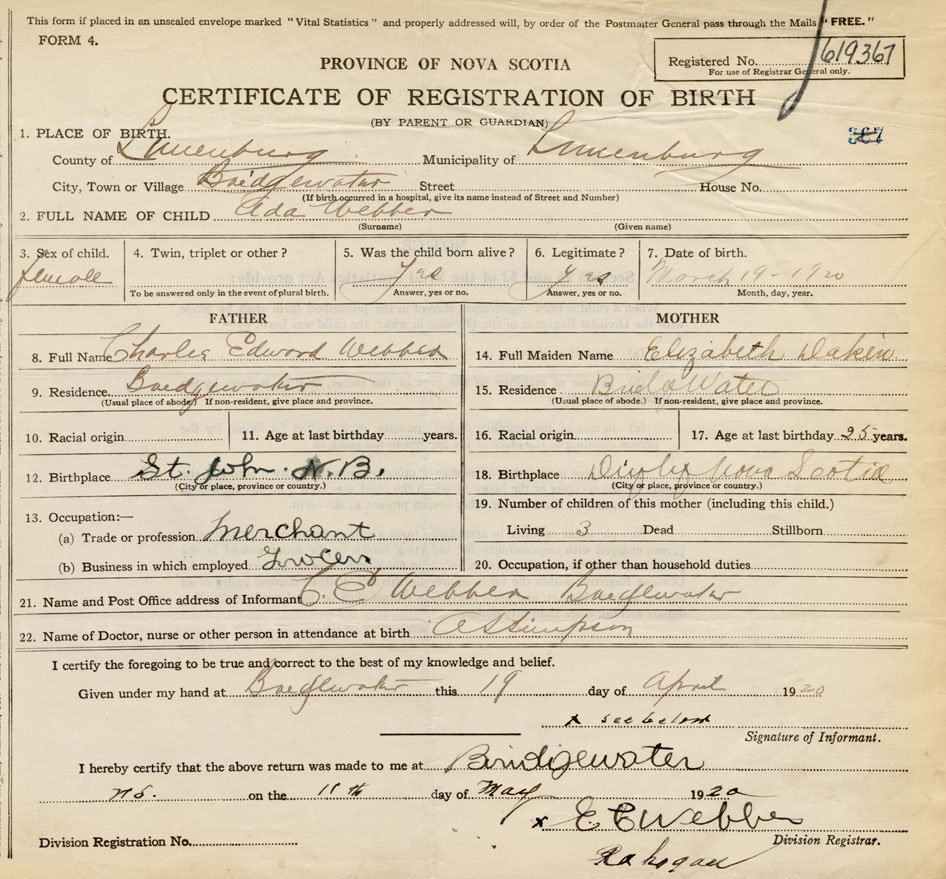 This form if placed in an unsealed envelope marked "Vital Statistics" and properly addressed will, by order of the Postmaster General pass through the Mails "FREE."
FORM 4.
Registered No. 619367
For use of Registrar General only.
PROVINCE OF NOVA SCOTIA
CERTIFICATE OF REGISTRATION OF BIRTH
(BY PARENT OR GUARDIAN)
367
1. PLACE OF BIRTH.
County of Lunenburg Municipality of Lunenburg
City, Town or Village Bridgewater Street House No.
(If birth occurred in a hospital, give its name instead of Street and Number)
2. FULL NAME OF CHILD Ada Webber
(Surname) (Given name)
3. Sex of child. 4. Twin, triplet or other? 5. Was the child born alive? 6. Legitimate? 7. Date of birth.
female Yes Yes March 19-1920
To be answered only in the event of plural birth. Answer, yes or no. Answer, yes or no. Month, day, year.
FATHER
8. Full Name Charles Edward Webber
9. Residence. Bridgewater
(Usual place of abode) If non-resident, give place and province.
10. Racial origin 11. Age at last birthday years.
12. Birthplace St. John. N.B.
(City or place, province or country.)
13. Occupation:—
(a) Trade or profession Merchant
(b) Business in which employed Grocers
MOTHER
14. Full Maiden Name Elizabeth Dakin
15. Residence BridgWater
(Usual place of abode.) If non-resident, give place and province.
16. Racial origin 17. Age at last birthday 25 years.
18. Birthplace Digby Nova Scotia
(City or place, province or country.)
19. Number of children of this mother (including this child.)
Living 3 Dead Stillborn
20. Occupation, if other than household duties
21. Name and Post Office address of Informant C. E Webber Bridgewater
22. Name of Doctor, nurse or other person in attendance at birth A Stimpson
I certify the foregoing to be true and correct to the best of my knowledge and belief.
Given under my hand at Bridgewater this 19 day of April 1920
x see below
Signature of Informant.
I hereby certify that the above return was made to me at Bridgewater
NS. on the 11th day of May 1920
x E C Webber
Division Registration No. Division Registrar.